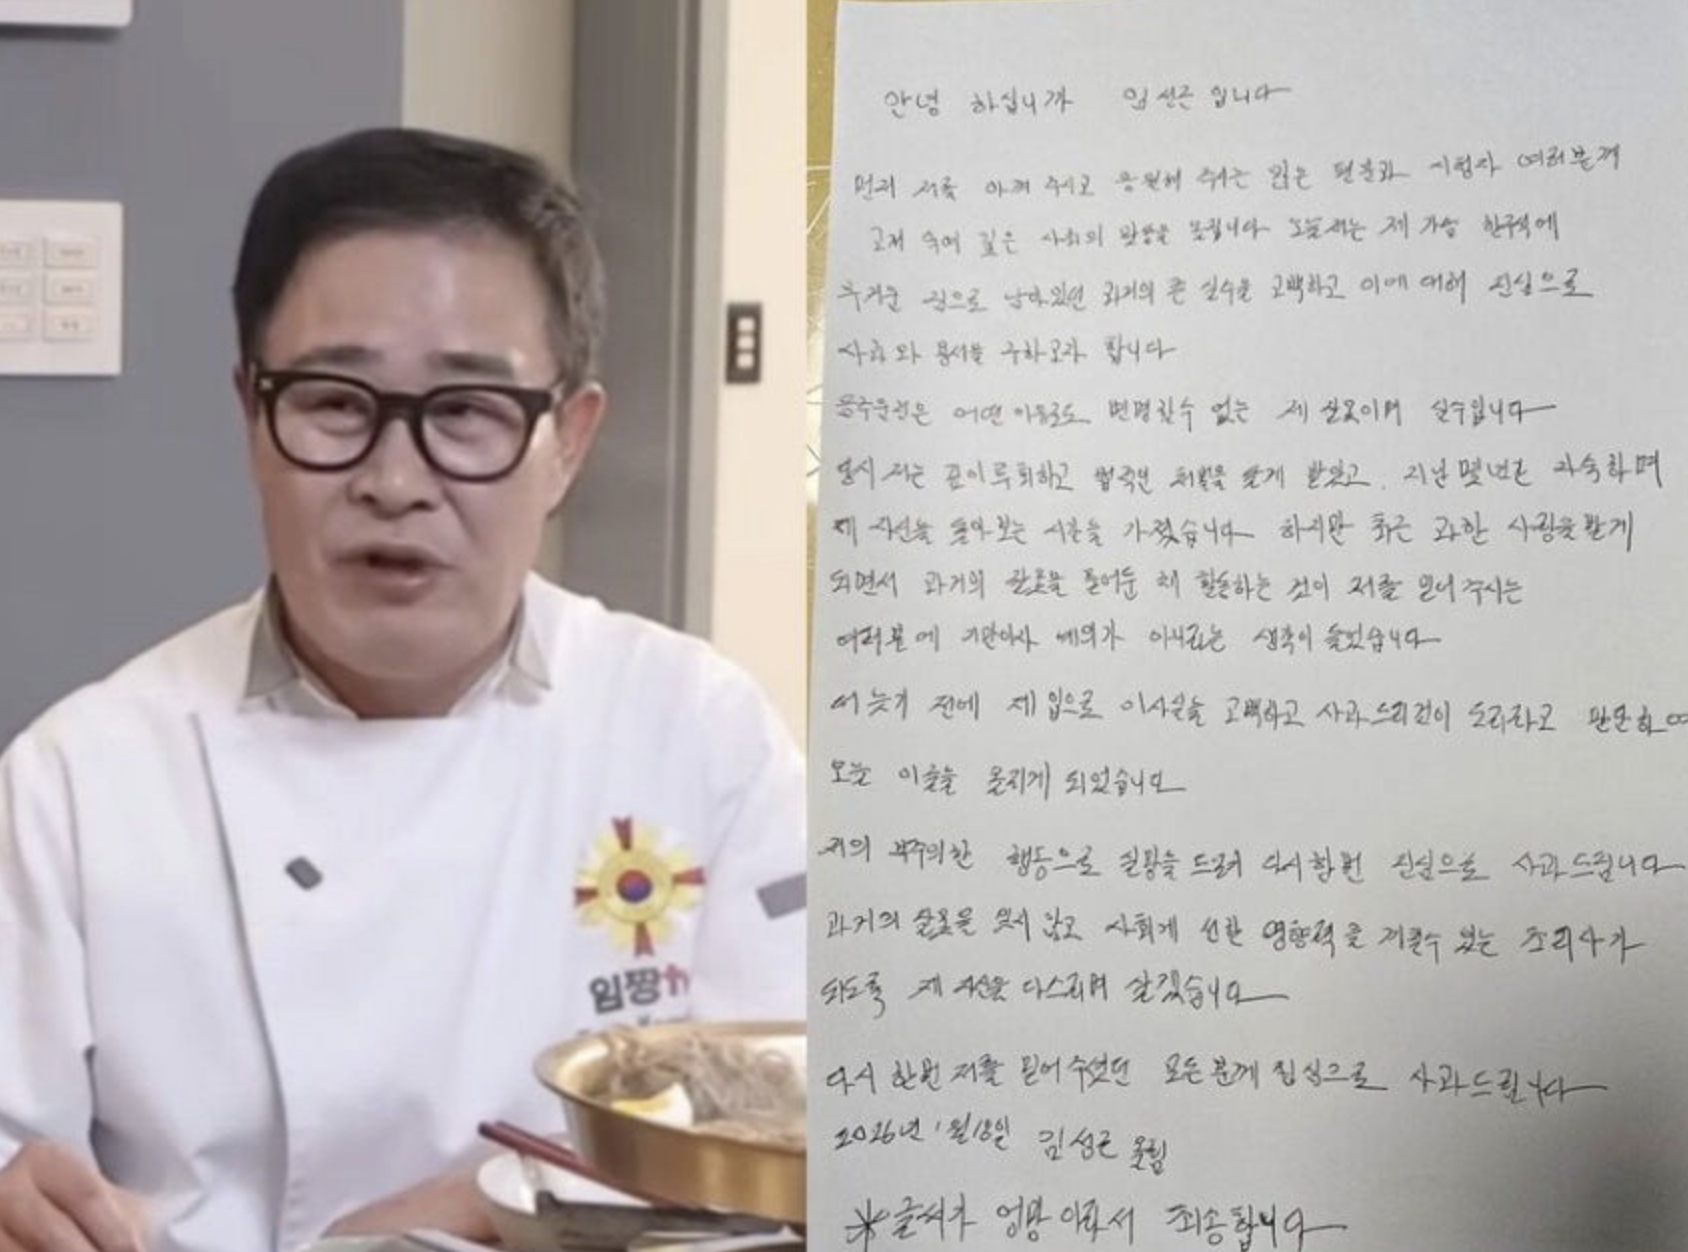 임짱
안녕 하십니까 임성근 입니다
먼저 저를 아껴 주시고 응원해 주시는 많은 팬분과 시청자 여러분께
고개 숙여 깊은 사죄의 말씀을 올립니다 오늘 저는 제 가슴 한구석에
무거운 짐으로 남아있던 과거의 큰 실수를 고백하고 이에 대해 진심으로
사죄와 용서를 구하고자 합니다
음주운전은 어떤 이유로도 변명할수 없는 제 잘못이며 실수입니다
당시 저는 깊이 후회하고 법적인 처벌을 받게 받았고, 지난 몇년간 자숙하며
제 자신을 돌아 보는 시간을 가졌습니다 하지만 최근 과한 사랑을 받게
되면서 과거의 잘못을 묻어둔 채 활동하는 것이 저를 믿어 주시는
여러분에 기만이자 예의가 아니라는 생각이 들었습니다
더 늦기 전에 제 입으로 이사실을 고백하고 사과드리것이 도리라고 판단하여
오늘 이글을 올리게 되었습니다
저의 부주의한 행동으로 실망을 드려 다시한번 진심으로 사과드립니다
과거의 잘못을 잊지 않고 사회게 선한 영향력을 끼칠수 있는 조리사가
되도록 제 자신을 다스리며 살겠습니다
다시 한번 저를 믿어 주셨던 모든 분께 진심으로 사과드립니다
2026년 1월 18일 김성근 올림
※글씨가 엉망 이라서 죄송합니다